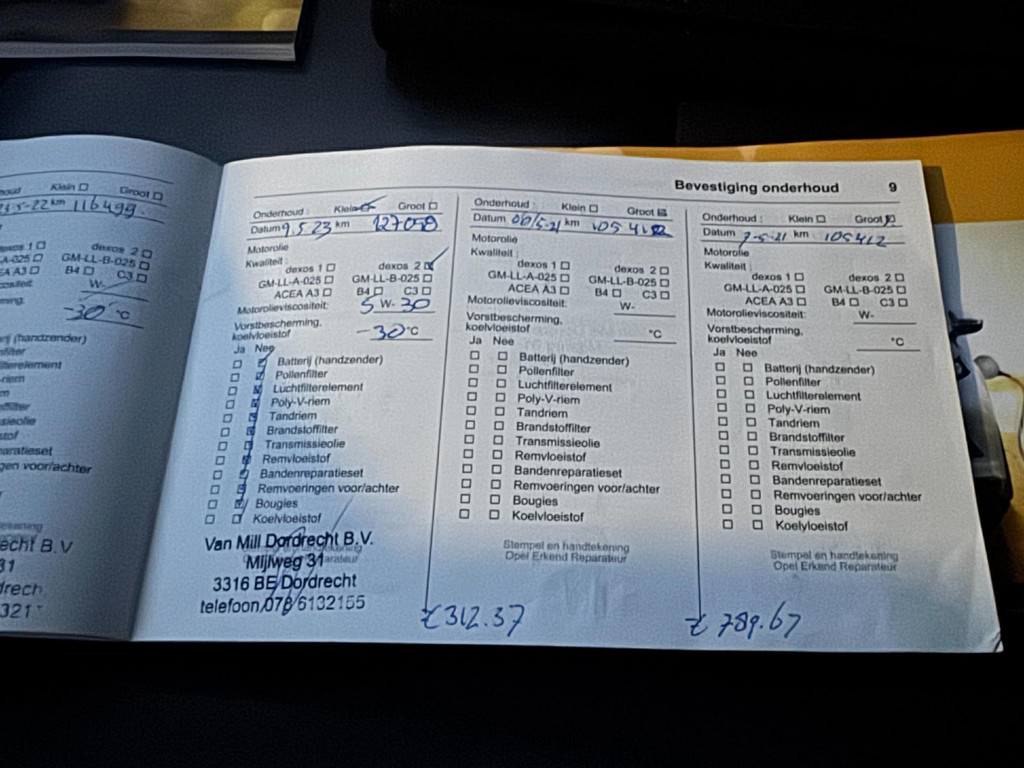 Bevestiging onderhoud 9
Klein Groot
-22 km 116499.
dexos 1 dexos 2
GM-LL-B-025
A3 B4 C3
W-
-30 °C
(handzender)
echt B.V
31
drech
321
Onderhoud : Klein Groot
Datum 9.5.23 km 127050
Motorolie
Kwaliteit :
dexos 1 dexos 2
GM-LL-A-025 GM-LL-B-025
ACEA A3 B4 C3
Motorolieviscositeit: 5 W- 30
Vorstbescherming,
koelvloeistof -30 °C
Ja Nee
Batterij (handzender)
Pollenfilter
Luchtfilterelement
Poly-V-riem
Tandriem
Brandstoffilter
Transmissieolie
Remvloeistof
Bandenreparatieset
Remvoeringen voor/achter
Bougies
Koelvloeistof
Van Mill Dordrecht B.V.
Mijlweg 31
3316 BE Dordrecht
telefoon 078 6132155
Onderhoud : Klein Groot
Datum km
Motorolie
Kwaliteit :
dexos 1 dexos 2
GM-LL-A-025 GM-LL-B-025
ACEA A3 B4 C3
Motorolieviscositeit: W-
Vorstbescherming,
koelvloeistof °C
Ja Nee
Batterij (handzender)
Pollenfilter
Luchtfilterelement
Poly-V-riem
Tandriem
Brandstoffilter
Transmissieolie
Remvloeistof
Bandenreparatieset
Remvoeringen voor/achter
Bougies
Koelvloeistof
Stempel en handtekening
Opel Erkend Reparateur
€ 312.37
Onderhoud : Klein Groot
Datum 7-5-21 km 105412
Motorolie
Kwaliteit :
dexos 1 dexos 2
GM-LL-A-025 GM-LL-B-025
ACEA A3 B4 C3
Motorolieviscositeit: W-
Vorstbescherming,
koelvloeistof °C
Ja Nee
Batterij (handzender)
Pollenfilter
Luchtfilterelement
Poly-V-riem
Tandriem
Brandstoffilter
Transmissieolie
Remvloeistof
Bandenreparatieset
Remvoeringen voor/achter
Bougies
Koelvloeistof
Stempel en handtekening
Opel Erkend Reparateur
€ 789.67